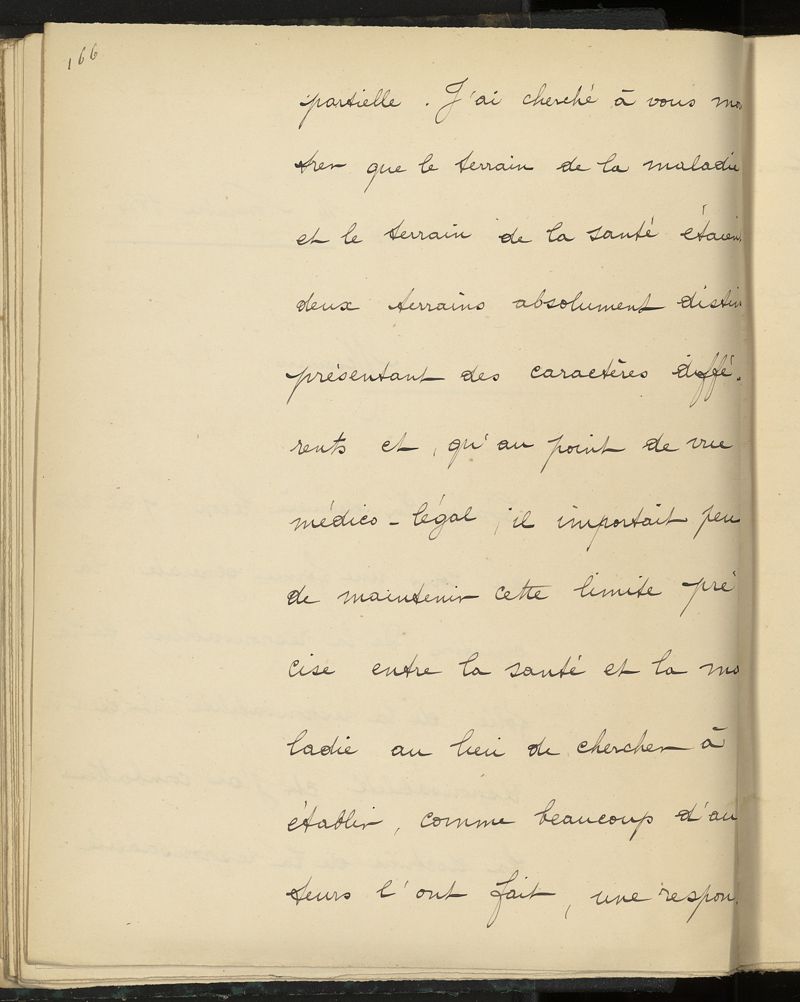 166
partielle. J'ai cherché à vous mon
trer que le terrain de la maladie
et le terrain de la santé étaient
deux terrains absolument distin
présentant des caractères diffé-
rents et, qu'au point de vue
médico-légal, il importait peu
de maintenir cette limite pré
cise entre la santé et la ma
ladie au lieu de chercher à
établir, comme beaucoup d'au
teurs l'ont fait, une respon-